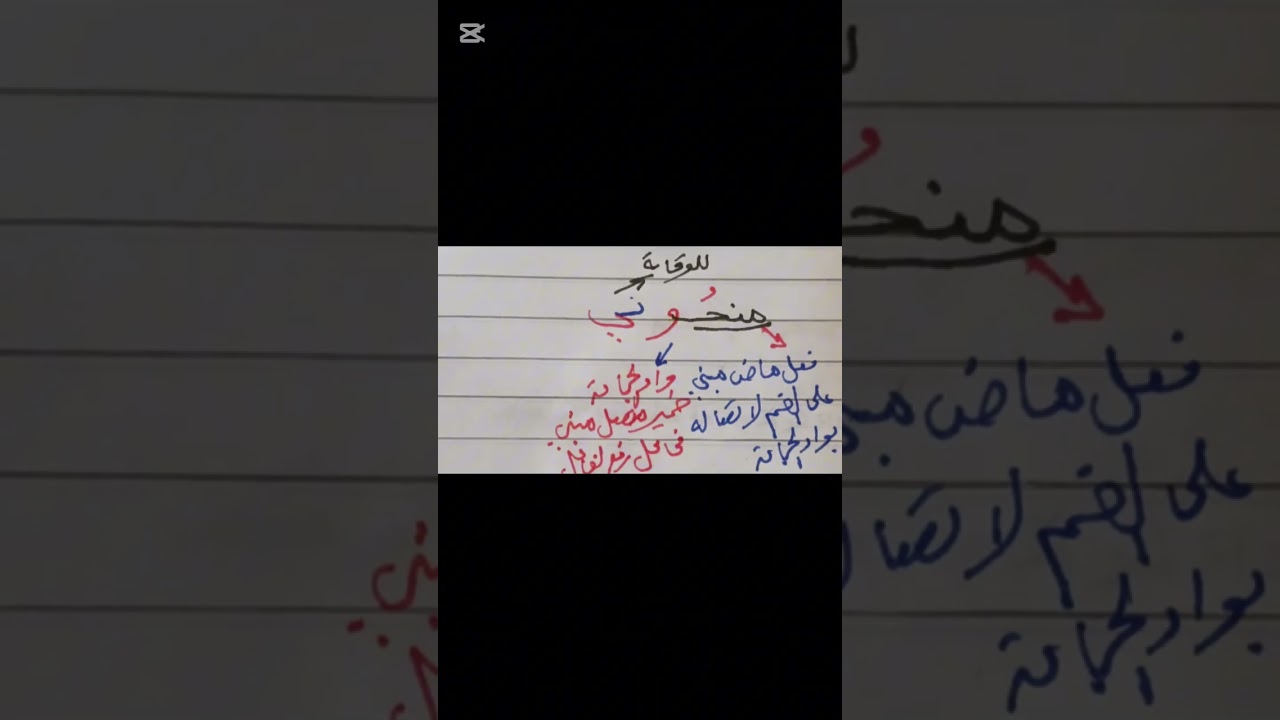 للوقاية
منحُوني
فعل ماض مبني
على الضم لاتصاله
بواو الجماعة
واو الجماعة
ضمير متصل مبني
في محل رفع فاعل